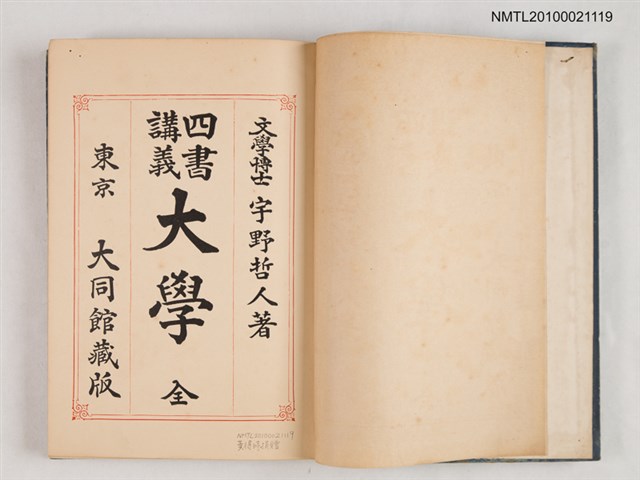 NMTL20100021119
文學博士 宇野哲人著
四書
講義
大學 全
東京 大同館藏版
NMTL20100021119